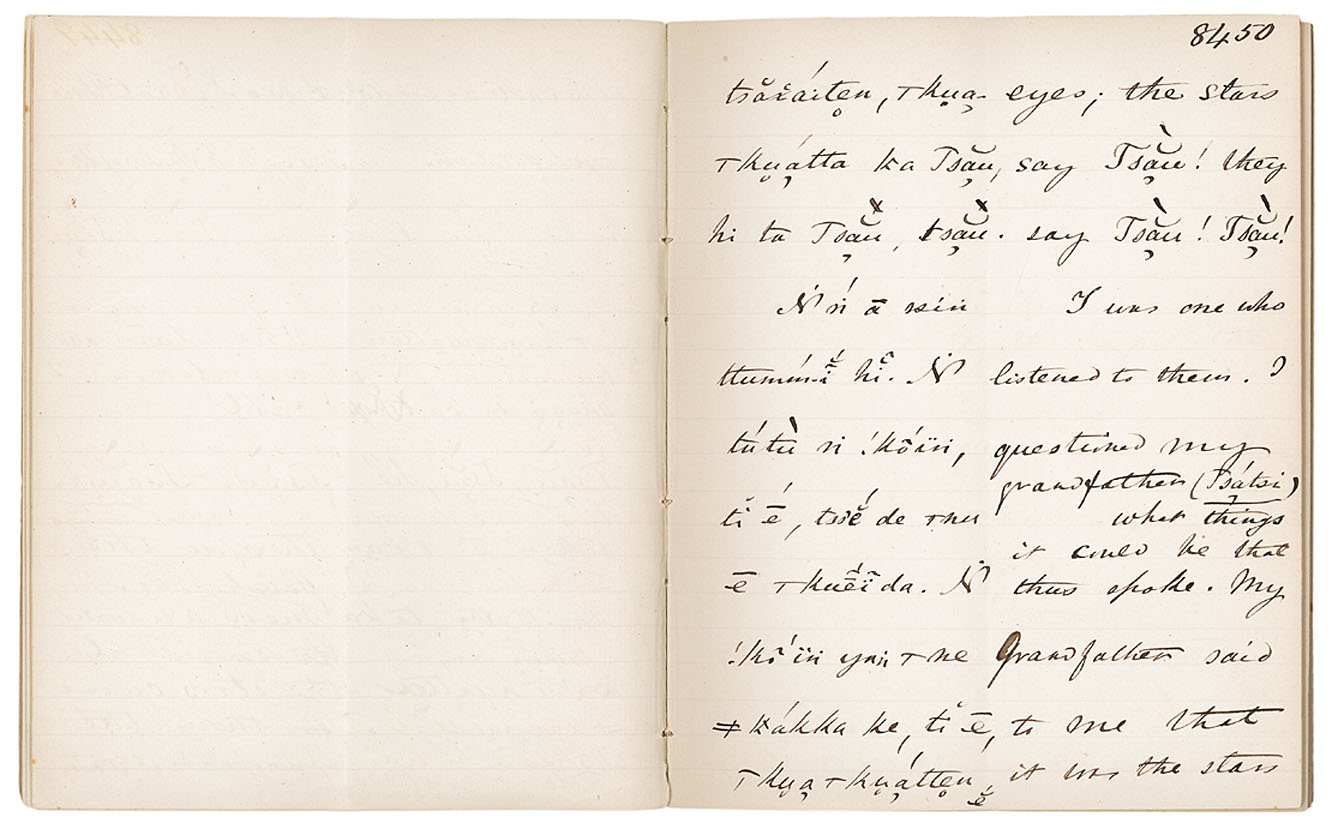 8450
tsắxáiten, ꞇkua- eyes; the stars
ꞇkuátta ka Tsău, say Tsằu! they
hi ta Tsău, tsău. say Tsằu! Tsằu!
Ń ń ā ssin I was one who
ttumḿ-ĭ hĭ. Ń listened to them. I
tútù ń !kõ̍ïn, questioned my
grandfather (Tsátsi)
tĭ ḗ, tssẽ́ de ꞇnu what things
it could be that
ē ꞇkuẽ́ĭ da. Ń thus spoke. My
!kõ̍ïn ꞇne Grandfather said
ǂkákka ke, tĭ ē, to me that
ꞇkuaꞇkuátten ĕ, it was the stars